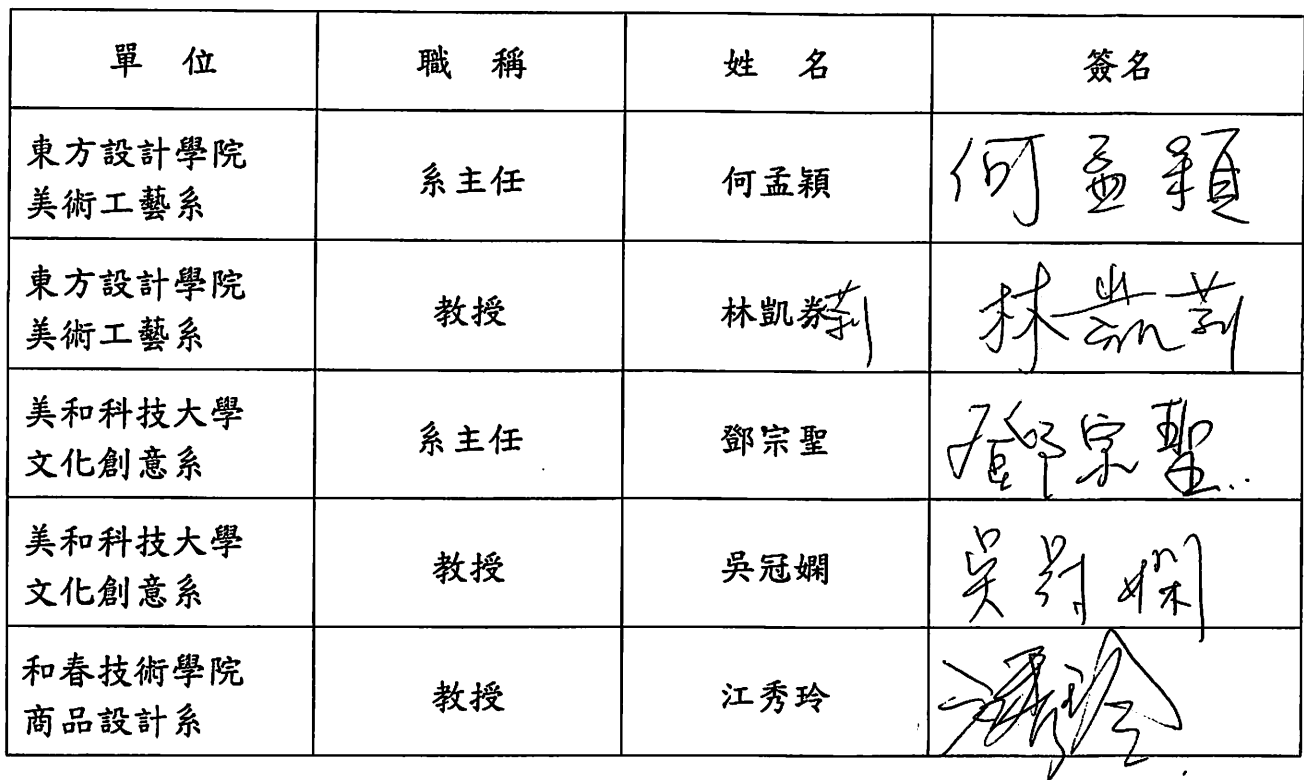 單 位 職 稱 姓 名 簽名
東方設計學院
美術工藝系 系主任 何孟穎 何孟穎
東方設計學院
美術工藝系 教授 林凱券莉 林凱莉
美和科技大學
文化創意系 系主任 鄧宗聖 鄧宗聖
美和科技大學
文化創意系 教授 吳冠嫻 吳冠嫻
和春技術學院
商品設計系 教授 江秀玲 江秀玲